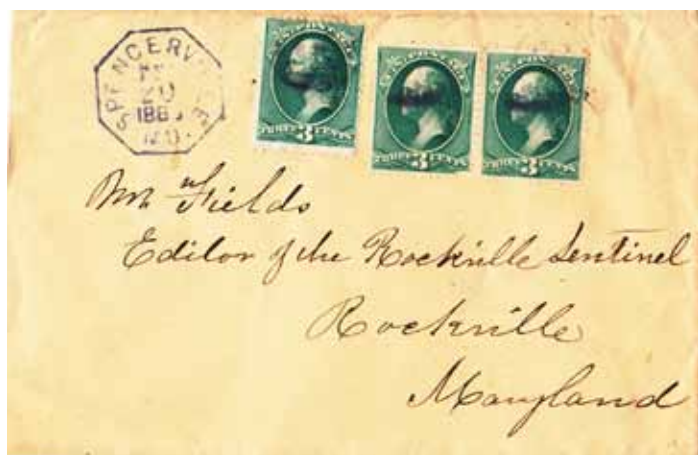 SPENCERVILLE
20
188
MD.
U.S. POSTAGE
THREE 3 CENTS
U.S. POSTAGE
THREE 3 CENTS
U.S. POSTAGE
THREE 3 CENTS
Mr Fields
Editor of the Rockville Sentinel
Rockville
Maryland